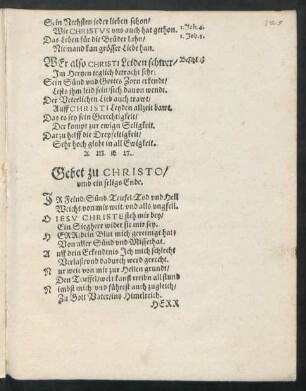 Sein Nechsten jeder lieben schon/
Wie CHRISTVS uns auch hat gethon.
1. Joh. 4.
Das Leben für die Brüder lahn/
1. Joh. 3.
Niemand kan grösser Liebe han.
WEr also CHRISTI Leiden schwer/
Beschl:
Im Hertzen teglich betracht sehr.
Sein Sünd und Gottes Zorn erkendt/
Lests ihm leid sein/sich davon wendt.
Der Veterlichen Lieb auch trawt/
Auff CHRISTI Leyden allzeit bawt.
Das es sey sein Gerechtigkeit/
Der kompt zur ewign Seligkeit.
Darzu helff die Dreyfeltigkeit/
Sehr hoch globt in all Ewigkeit.
A M E N.
Gebet zu CHRISTO/
umb ein seligs Ende.
IR Feind/Sünd/Teufel/Tod und Hell
Weicht von mir weit und alls ungfell.
O IESV CHRISTE steh mir bey/
Ein Siegherr wider sie mir sey.
HERR/dein Blut mich gereinigt hat/
Von aller Sünd und Missethat.
Auff dein Erkendtnis Ich mich schlecht
Verlass/und dadurch werd gerecht.
Nur weit von mir zur Hellen grundt/
Den Teuffel/welt kanst treibn all stund
Nimbst mich/und führest auch zugleich/
Zu Gott Vater/ins Himelreich.
HERR